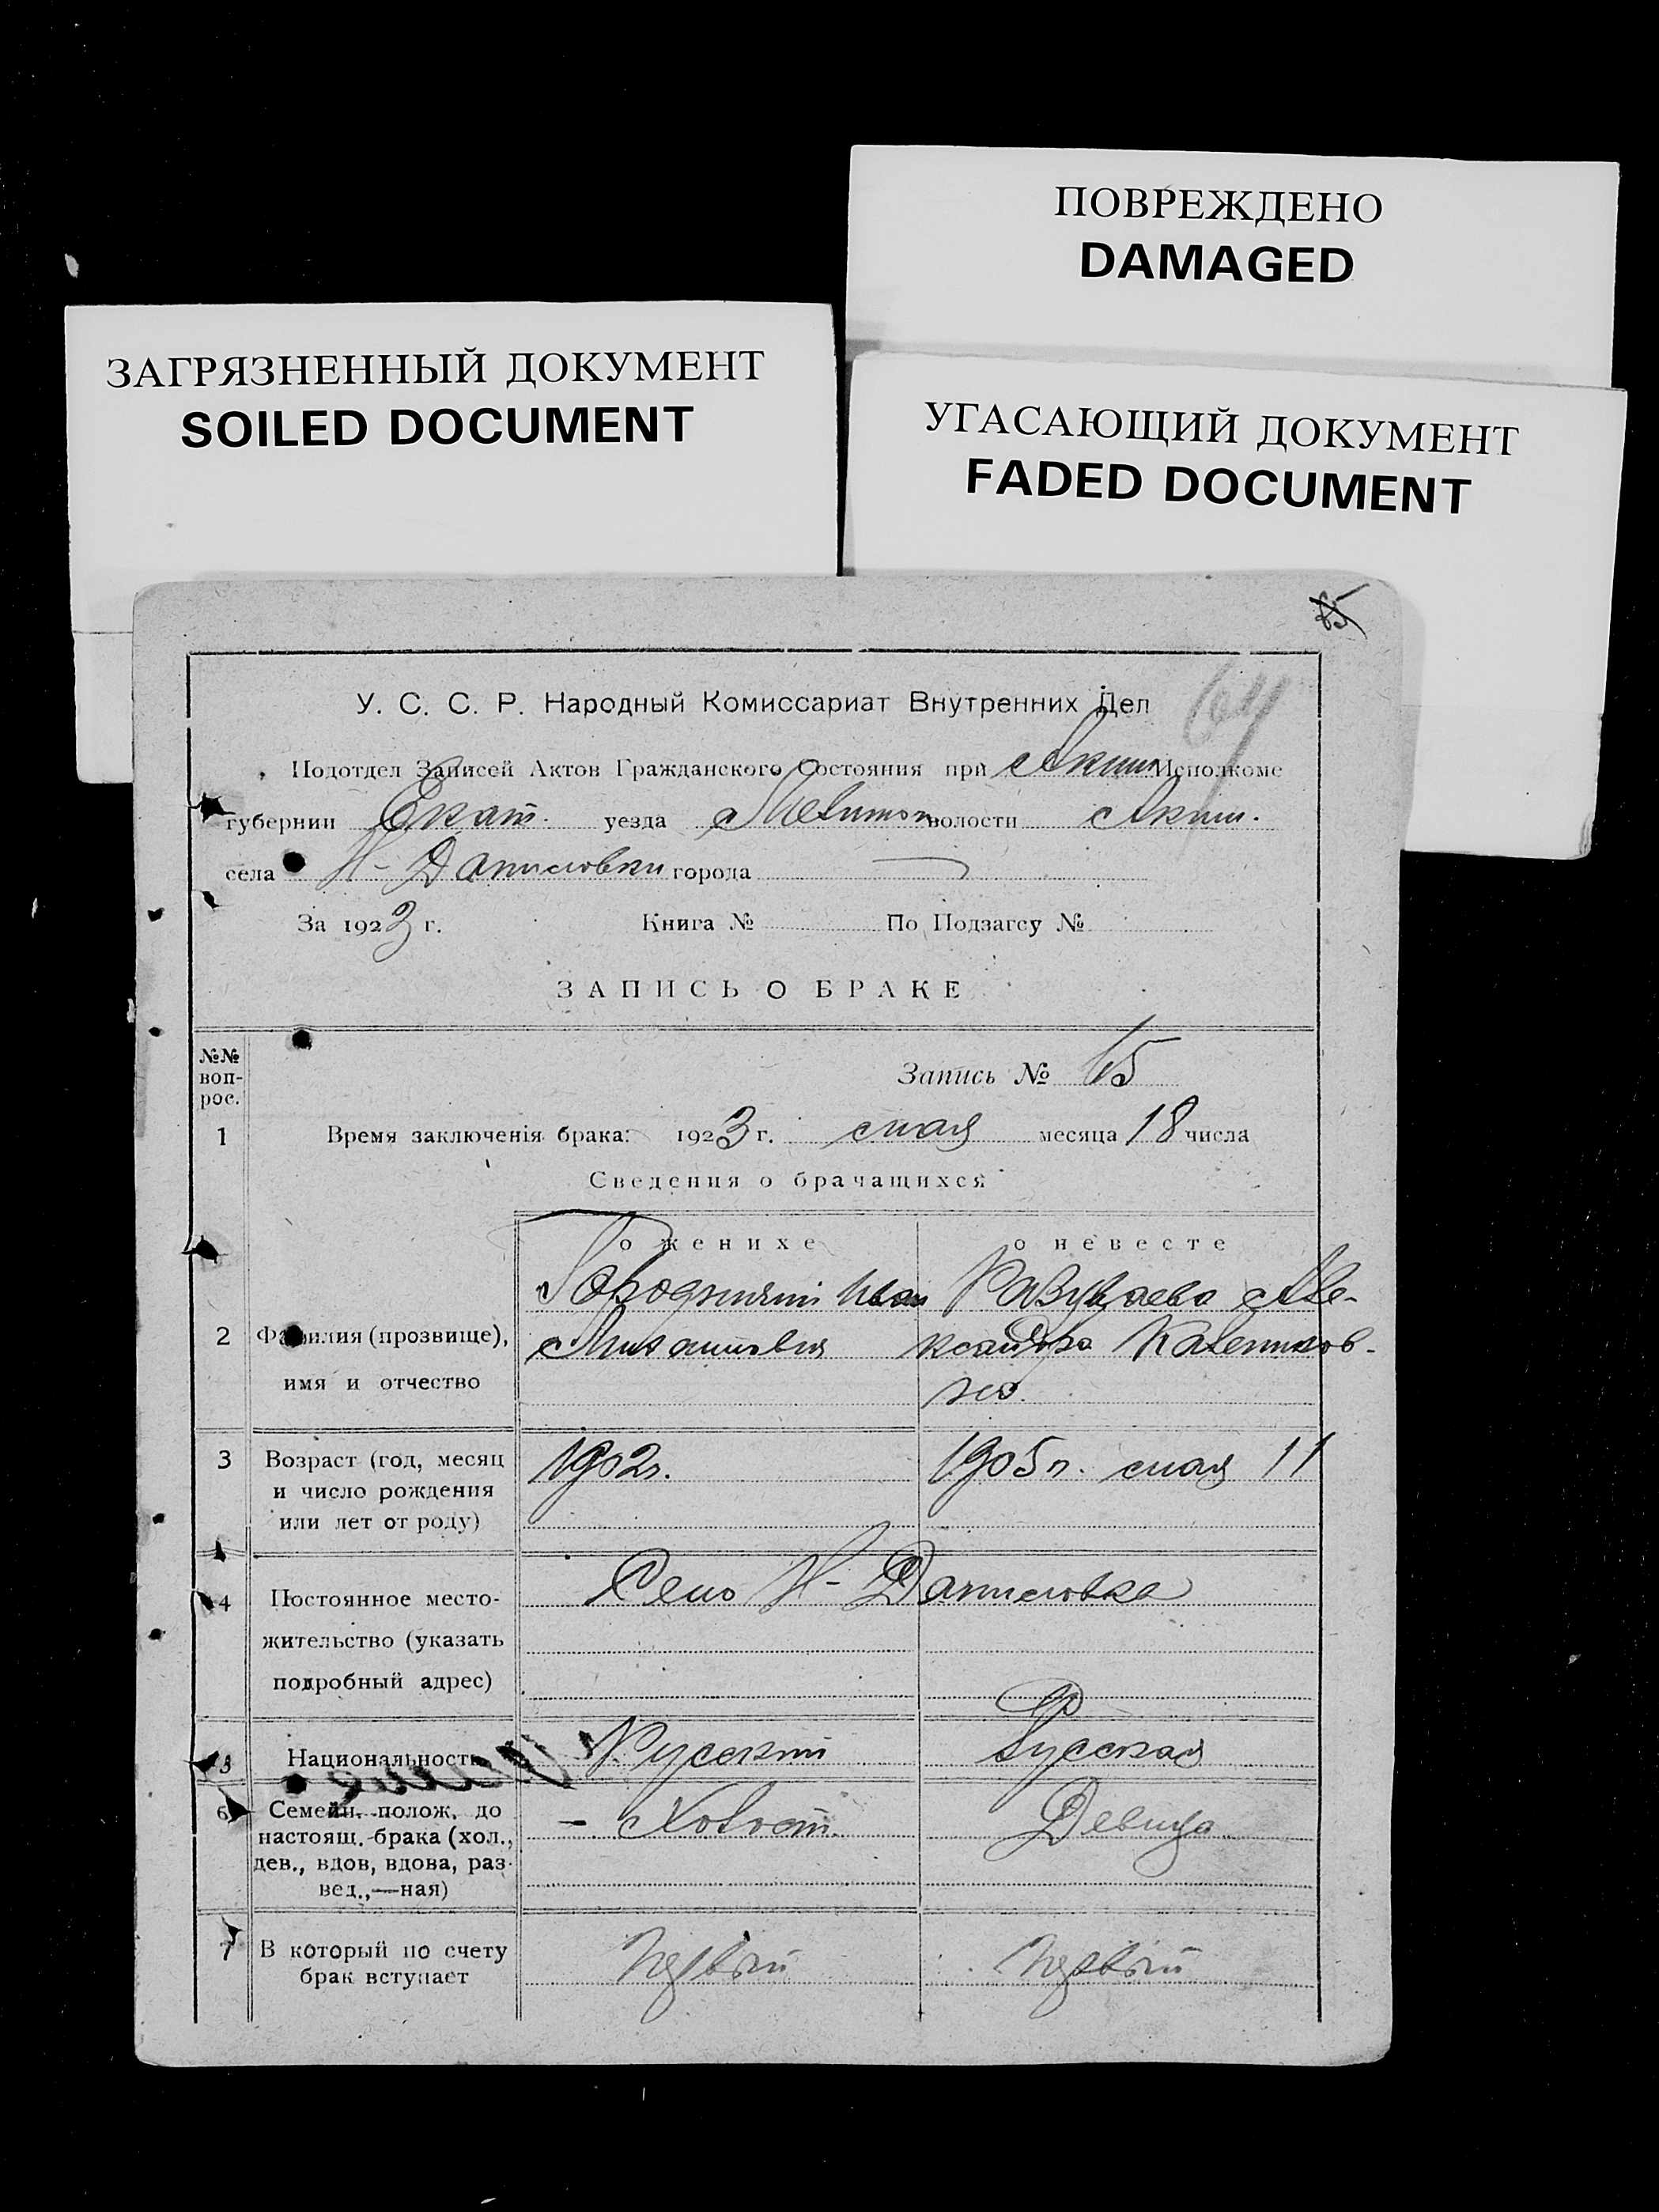 ПОВРЕЖДЕНО
DAMAGED
ЗАГРЯЗНЕННЫЙ ДОКУМЕНТ
SOILED DOCUMENT
УГАСАЮЩИЙ ДОКУМЕНТ
FADED DOCUMENT
65
64
У. С. С. Р. Народный Комиссариат Внутренних Дел
Подотдел Записей Актов Гражданского Состояния при Аким Исполкоме
губернии Екат. уезда Мелитоп волости Аким.
села Н-Даниловки города —
За 1923 г. Книга № По Подзагсу №
ЗАПИСЬ О БРАКЕ
№№ воп-рос.
Запись № 15
1 Время заключенія брака: 1923 г. мая месяца 18 числа
Сведения о брачащихся
о женихе о невесте
2 Фамилия (прозвище),
имя и отчество
Иван
Але-
ксандра
на.
3 Возраст (год, месяц
и число рождения
или лет от роду)
1902г. 1905г. мая 11
4 Постоянное место-
жительство (указать
подробный адрес)
Село Н-Даниловка
5 Национальность Русский Русская
6 Семейн. полож. до
настоящ. брака (хол.,
дев., вдов, вдова, раз-
вед.,—ная)
- Холост. Девица
7 В который по счету
брак вступает
Первый Первый